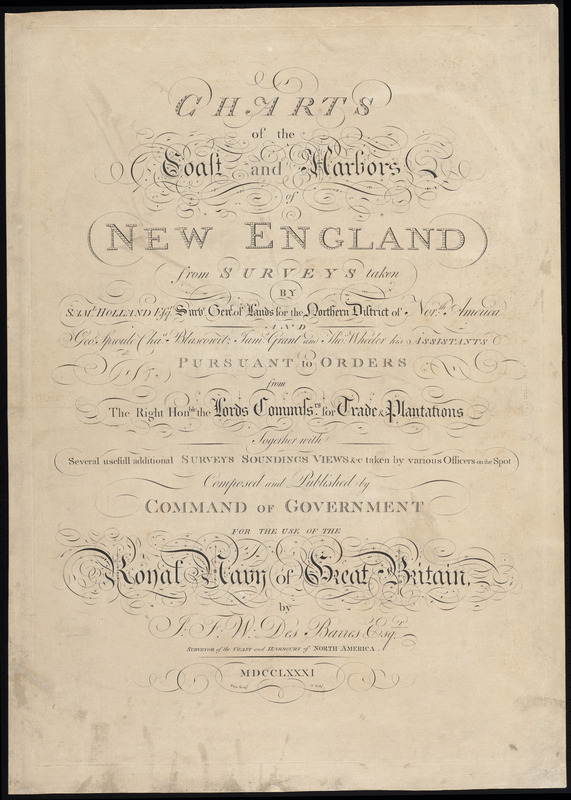 CHARTS
of the
Coast and Harbors
of
NEW ENGLAND
from SURVEYS taken
BY
SAML. HOLLAND Esqr. Survr. Genl. of Lands for the Northern District of North. America
AND
Geo Sproule Chas. Blaskowitz Jams. Grant and Thos. Wheeler his ASSISTANTS
PURSUANT to ORDERS
from
The Right Honble. the Lords Commissrs. for Trade & Plantations
Together with
Several usefull additional SURVEYS SOUNDINGS VIEWS &c taken by various Officers on the Spot
Composed and Published by
COMMAND OF GOVERNMENT
FOR THE USE OF THE
Royal Navy of Great Britain,
by
J. F. W. Des Barres Esqr.
SURVEYOR of the COAST and HARBOURS of NORTH AMERICA.
MDCCLXXXI